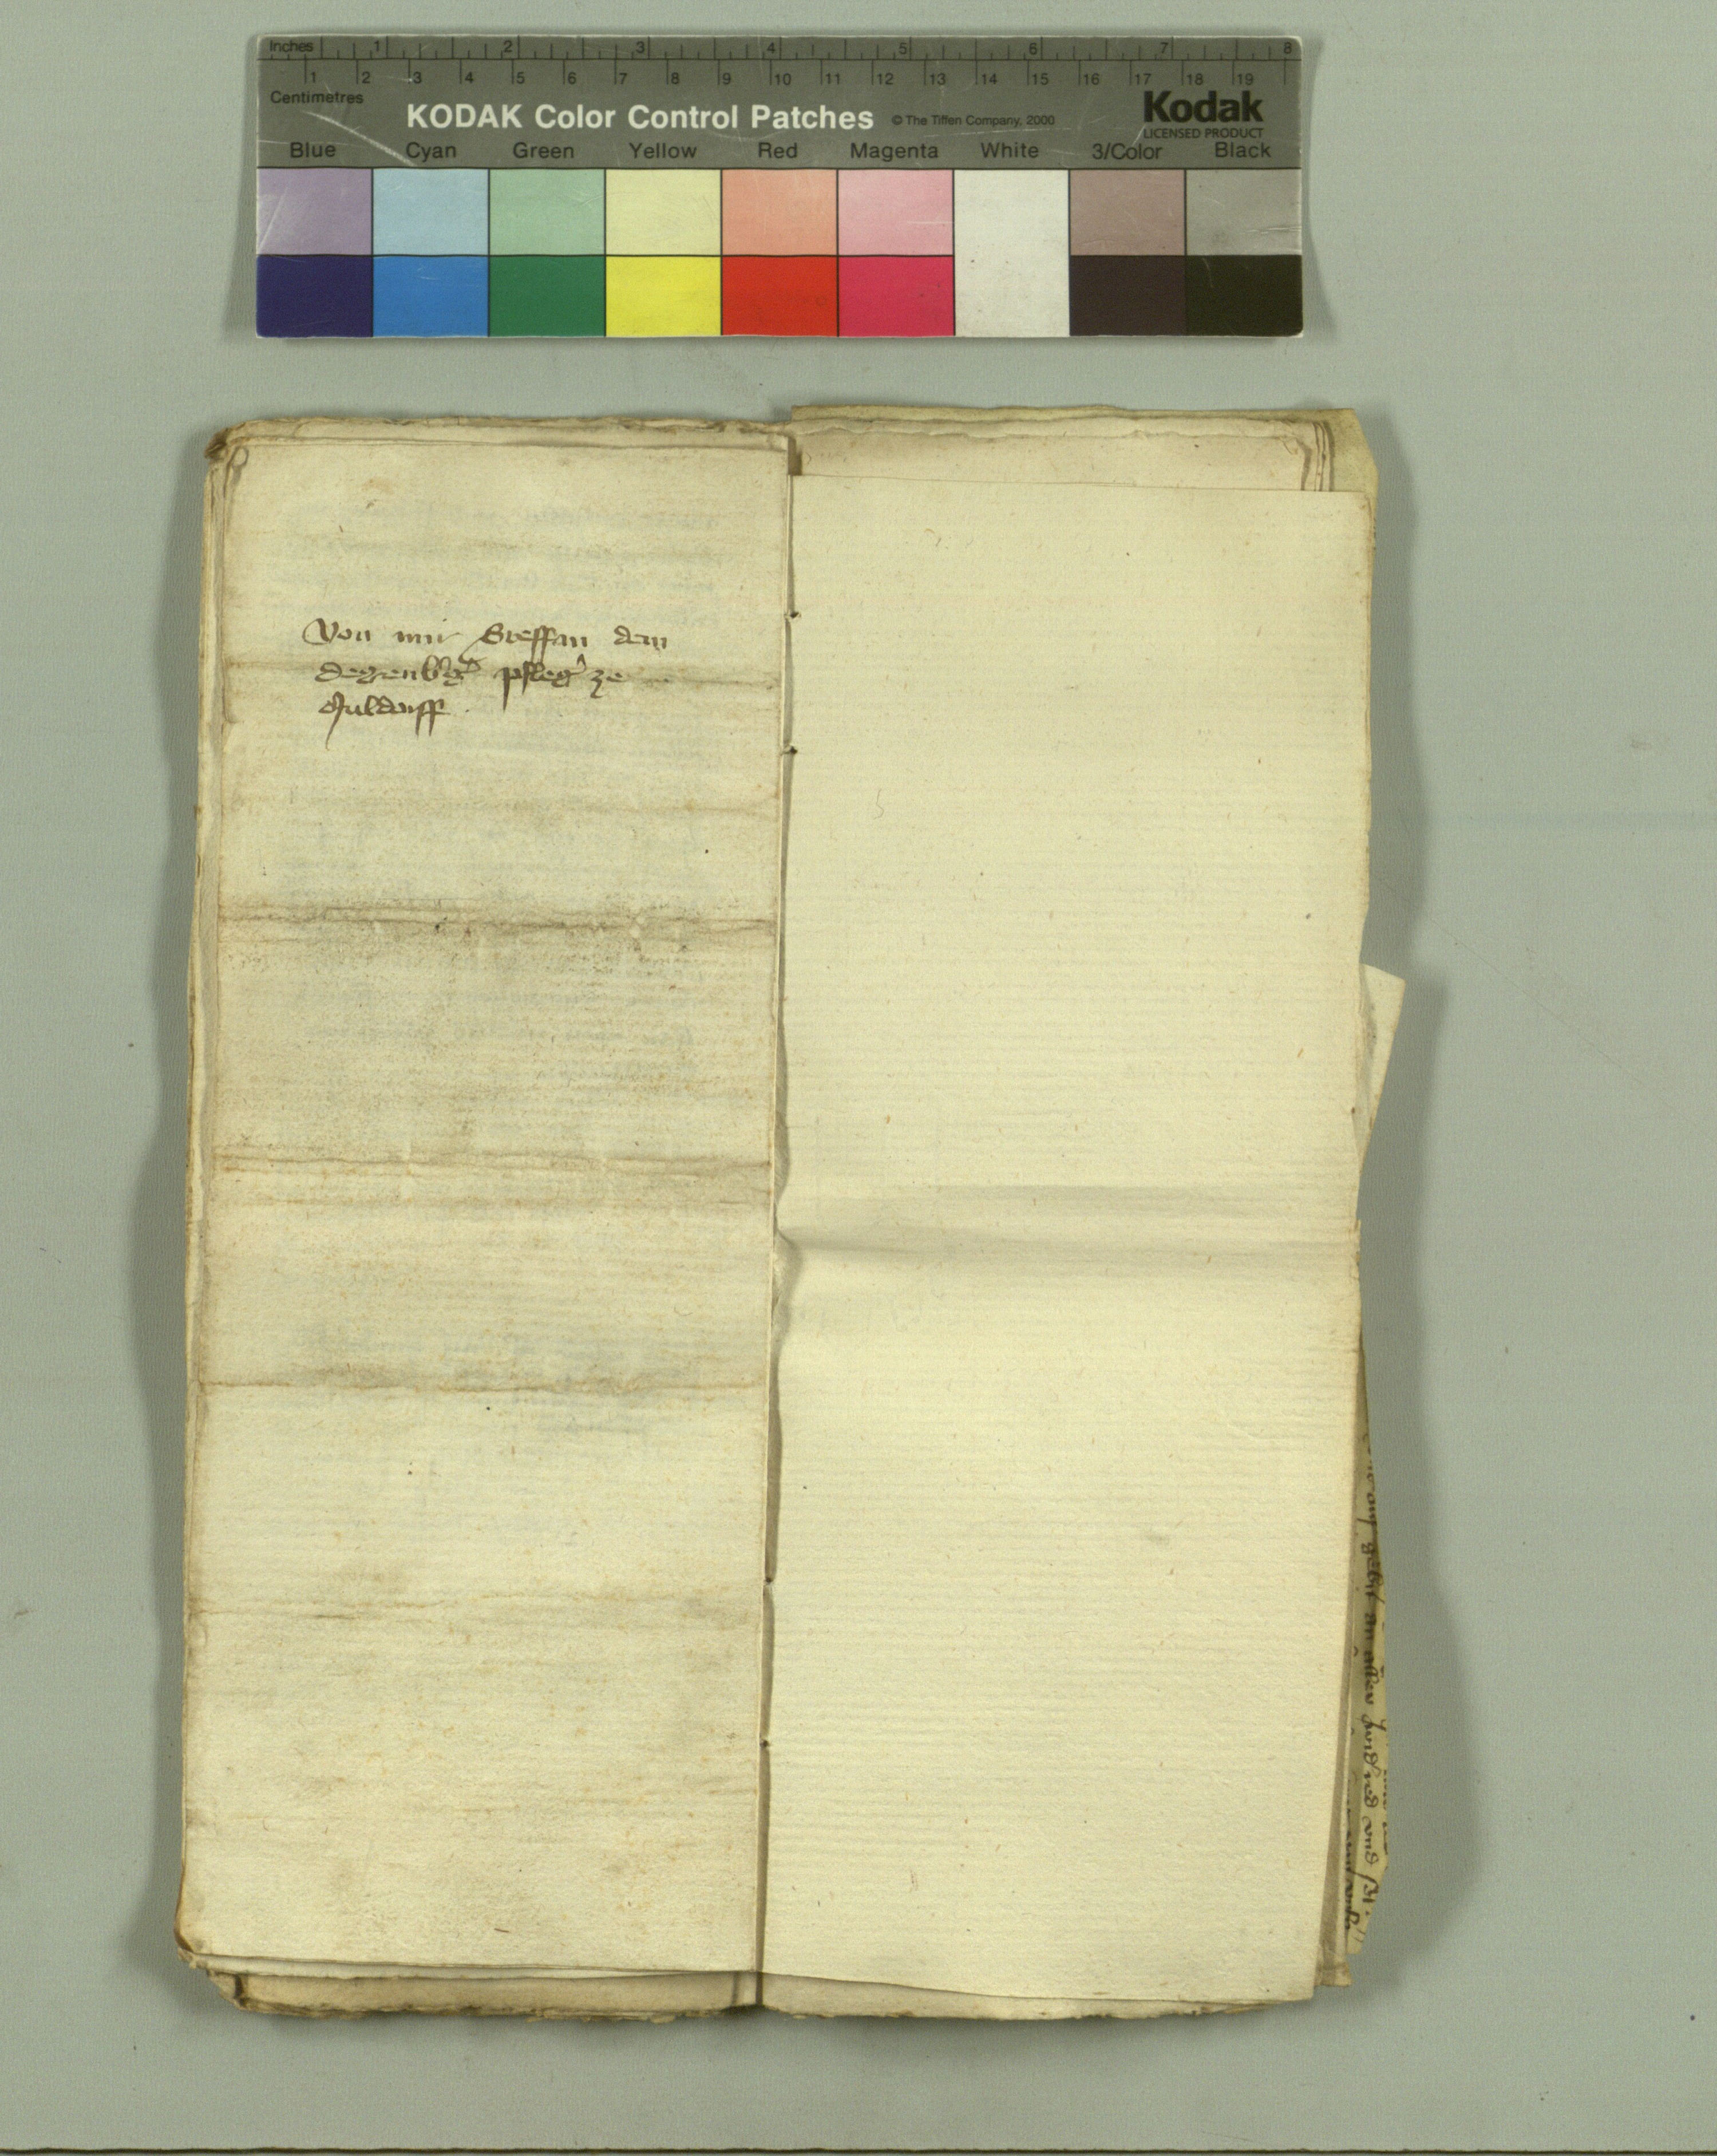 Inches 1 2 3 4 5 6 7 8
1 2 3 4 5 6 7 8 9 10 11 12 13 14 15 16 17 18 19
Centimetres
KODAK Color Control Patches © The Tiffen Company, 2000 Kodak
LICENSED PRODUCT
Blue Cyan Green Yellow Red Magenta White 3/Color Black
Von mir Steffan dem
degenbg' pfleg' ze